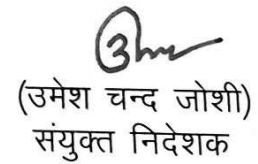 (उमेश चन्द जोशी)
संयुक्त निदेशक